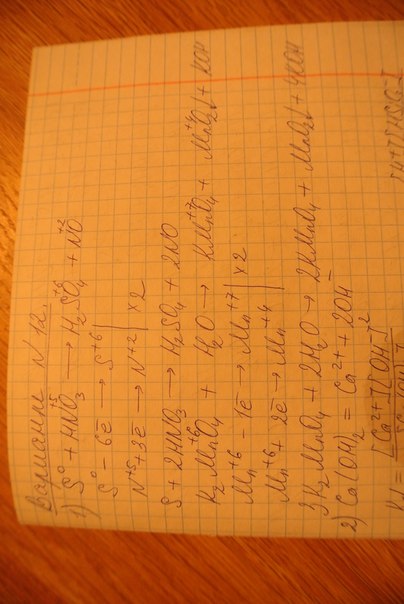 Вариант N 12.
1) S⁰ + HN⁺⁵O₃ → H₂S⁺⁶O₄ + N⁺²O
S⁰ - 6e̅ → S⁺⁶
N⁺⁵ + 3e̅ → N⁺² | x 2
S + 2HNO₃ → H₂SO₄ + 2NO
K₂Mn⁺⁶O₄ + H₂O → KMn⁺⁷O₄ + Mn⁺⁴O₂↓ + KOH
Mn⁺⁶ - 1e̅ → Mn⁺⁷ | x 2
Mn⁺⁶ + 2e̅ → Mn⁺⁴
3K₂MnO₄ + 2H₂O → 2KMnO₄ + MnO₂↓ + 4KOH
2) Ca(OH)₂ = Ca²⁺ + 2OH⁻
[Ca²⁺][OH⁻]²